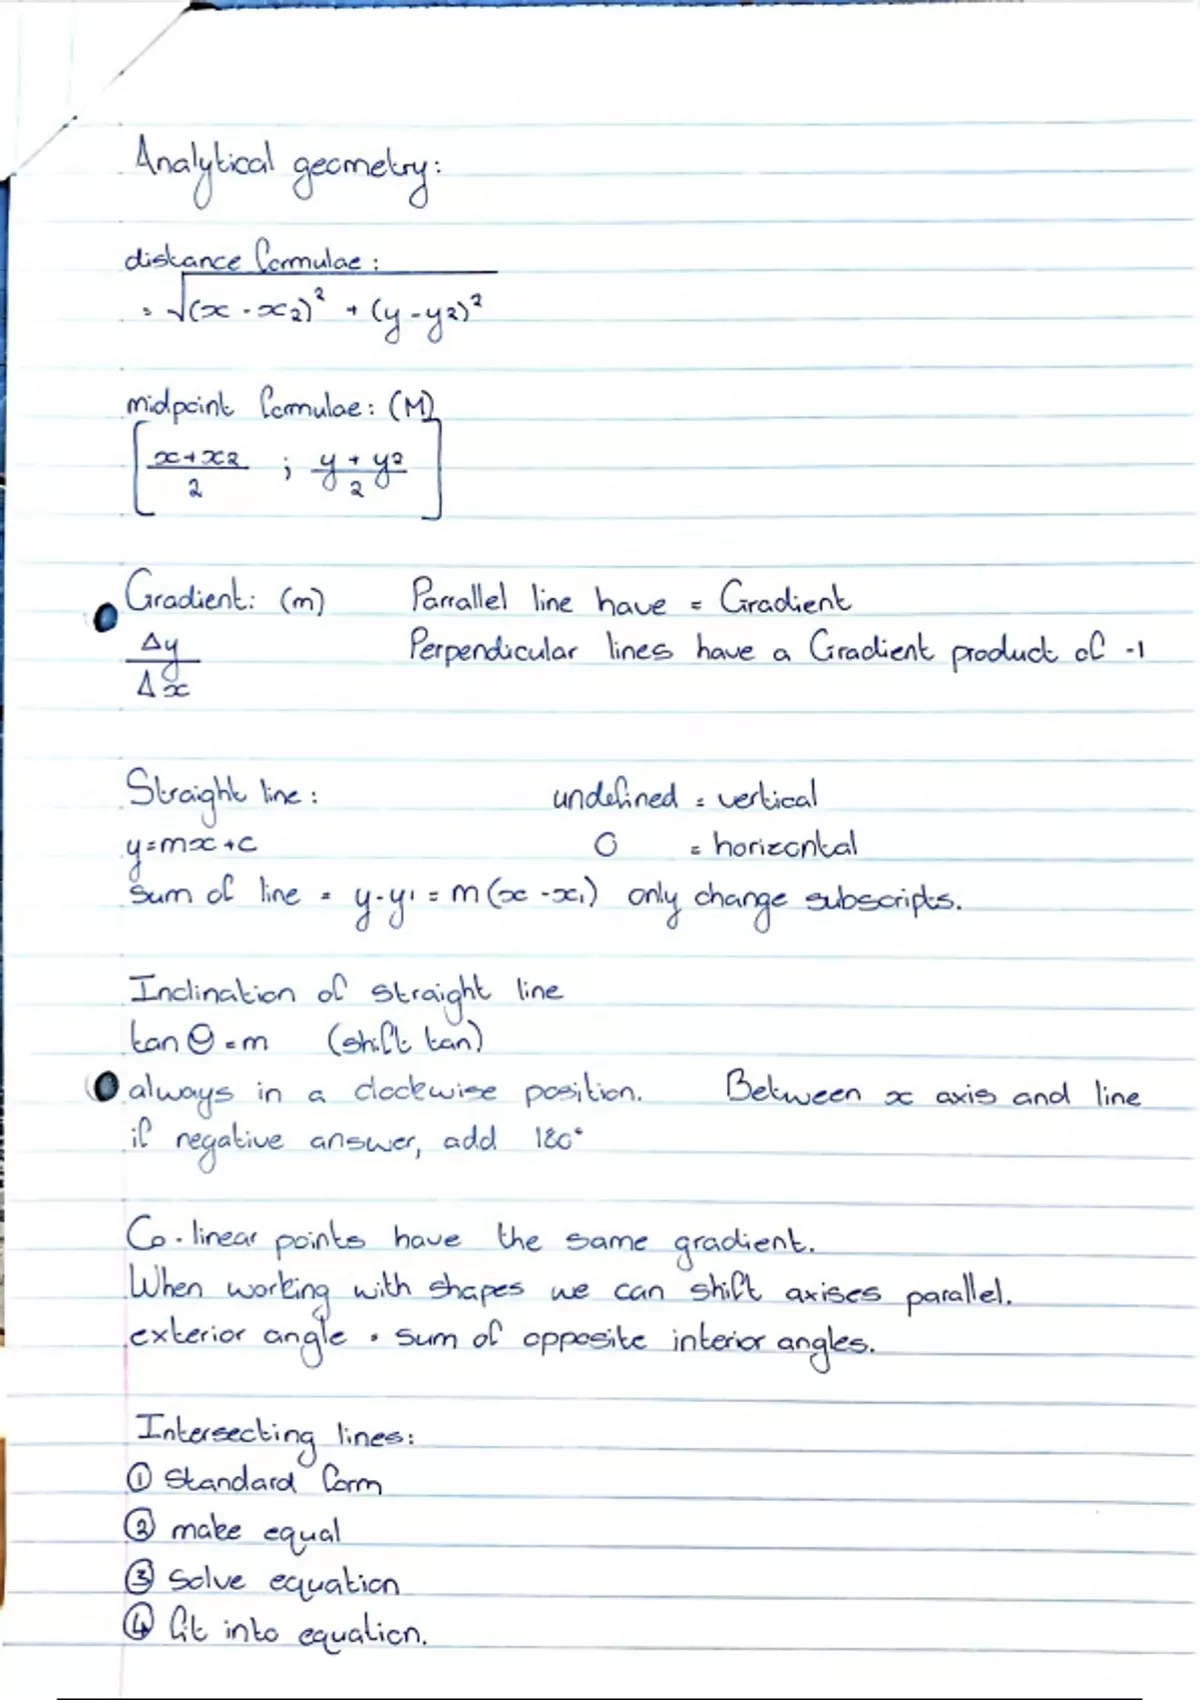 Analytical geometry:
distance formulae:
= √(x - x2)² + (y - y2)²
midpoint formulae: (M)
[x + x2 / 2 ; y + y2 / 2]
Gradient: (m) Parrallel line have = Gradient
Δy / Δx Perpendicular lines have a Gradient product of -1
Straight line: undefined = vertical
y = mx + c 0 = horizontal
Sum of line = y - y1 = m(x - x1) only change subscripts.
Inclination of straight line
tan θ = m (shift tan)
always in a clockwise position. Between x axis and line
if negative answer, add 180°
Co-linear points have the same gradient.
When working with shapes we can shift axises parallel.
exterior angle = sum of opposite interior angles.
Intersecting lines:
① Standard form
② make equal
③ Solve equation
④ fit into equation.